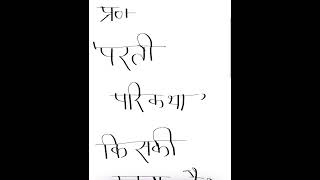 प्र०1
'परती
परिकथा'
किसकी